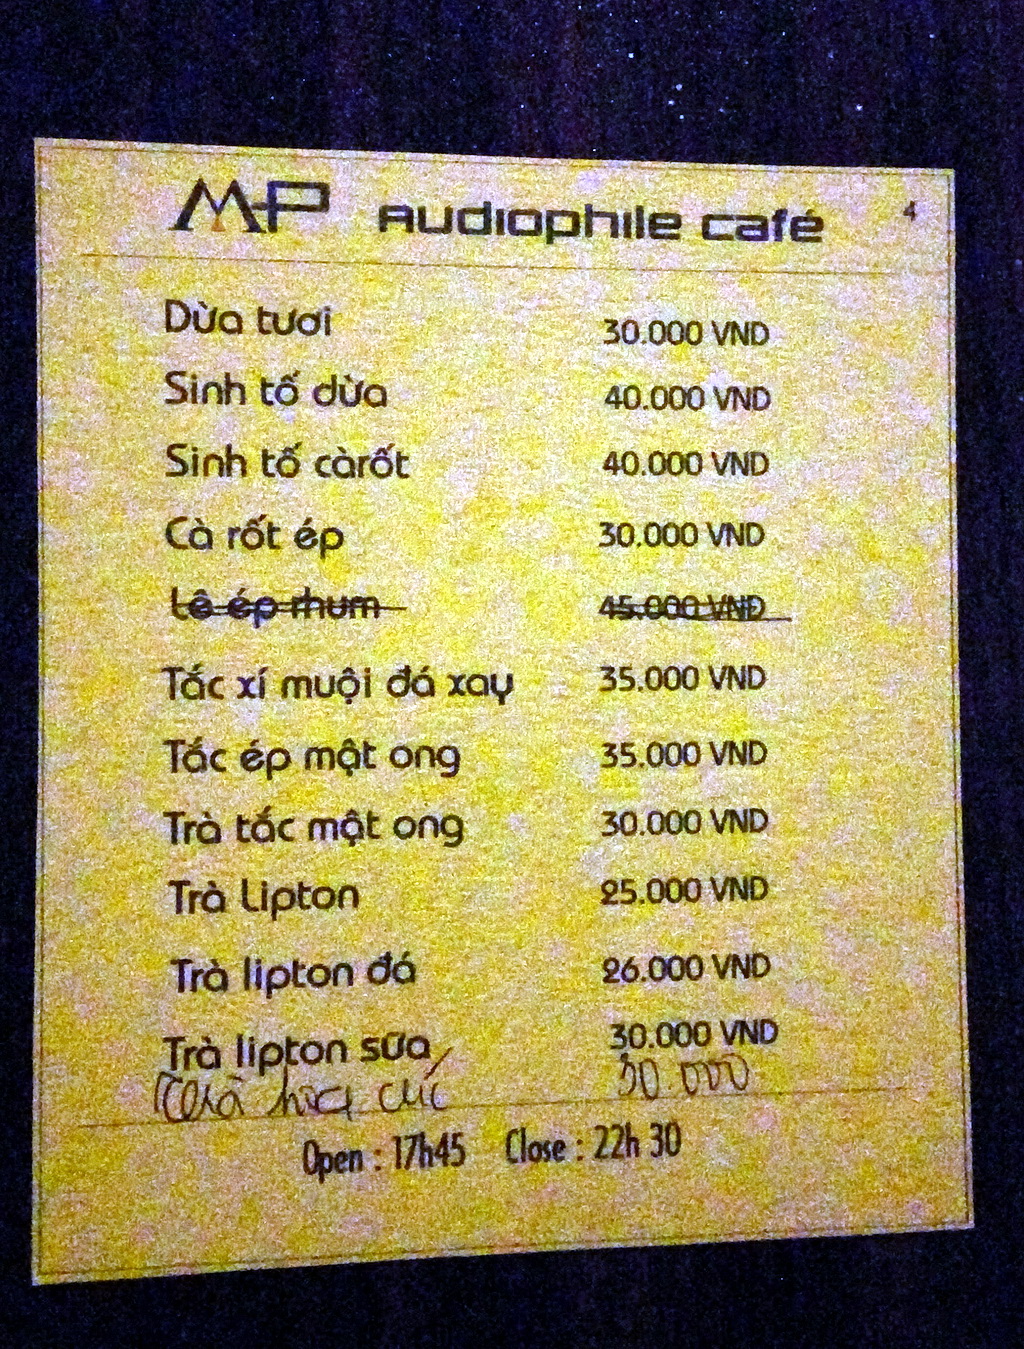 MP Audiophile café 4
Dừa tươi 30.000 VND
Sinh tố dừa 40.000 VND
Sinh tố càrốt 40.000 VND
Cà rốt ép 30.000 VND
Lê ép rhum 45.000 VNĐ
Tắc xí muội đá xay 35.000 VND
Tắc ép mật ong 35.000 VND
Trà tắc mật ong 30.000 VND
Trà Lipton 25.000 VND
Trà lipton đá 26.000 VND
Trà lipton sữa 30.000 VND
hoa cúc 30.000
Open : 17h45 Close : 22h 30